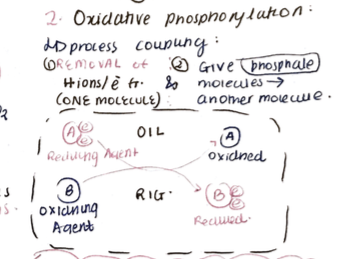 2. Oxidative phosphorylation:
↳D process coupling:
① REMOVAL of ② Give phosphate
H ions/ē fr. & molecules →
(ONE MOLECULE) : another molecule.
A e e OIL A
Reducing Agent Oxidned
B RIG. B e e
Oxidining Reduced.
Agent